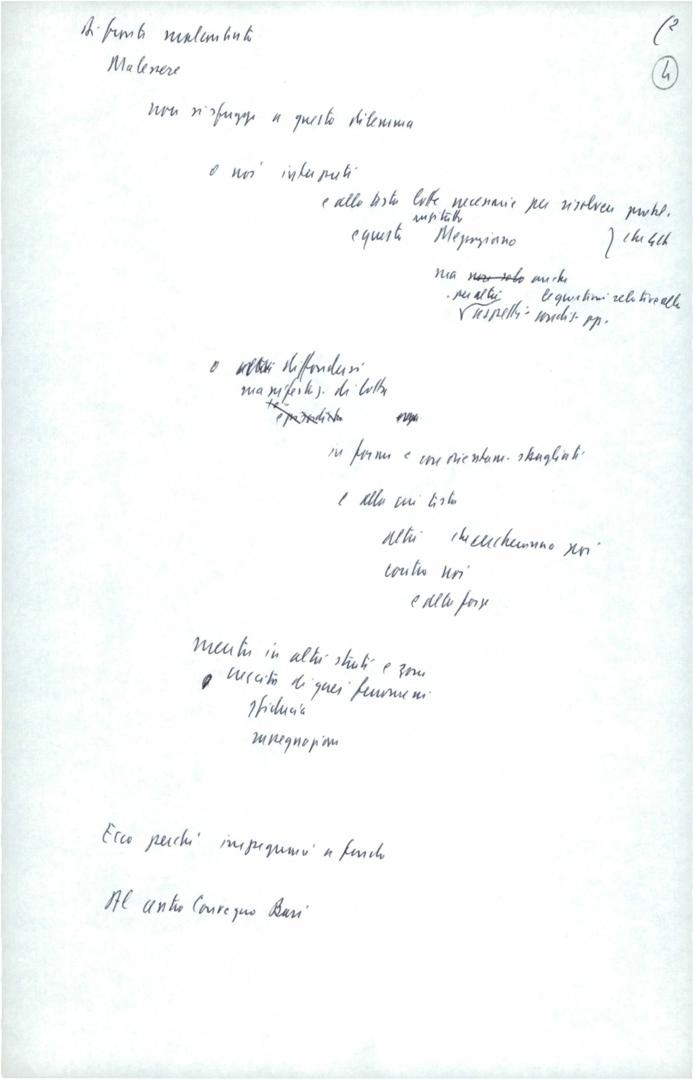 (2
4
Di fronte malcontento
Malessere
non si sfugge a questo dilemma
o noi interpreti
e alla testa lotte necessarie per risolvere probl.
e questo Mezzogiorno } che
ma non solo anche
per altri le questioni relative alle
condiz. pp.
o diffondersi
manifestaz. di lotta
in forme e con orientam. sbagliati
e alla cui testa
altri che cercheranno noi
contro noi
e altre forze
mentre in altri strati e zone
crescita di quei fenomeni
sfiducia
rassegnazione
Ecco perché impegnarsi a fondo
Al centro Convegno Bari